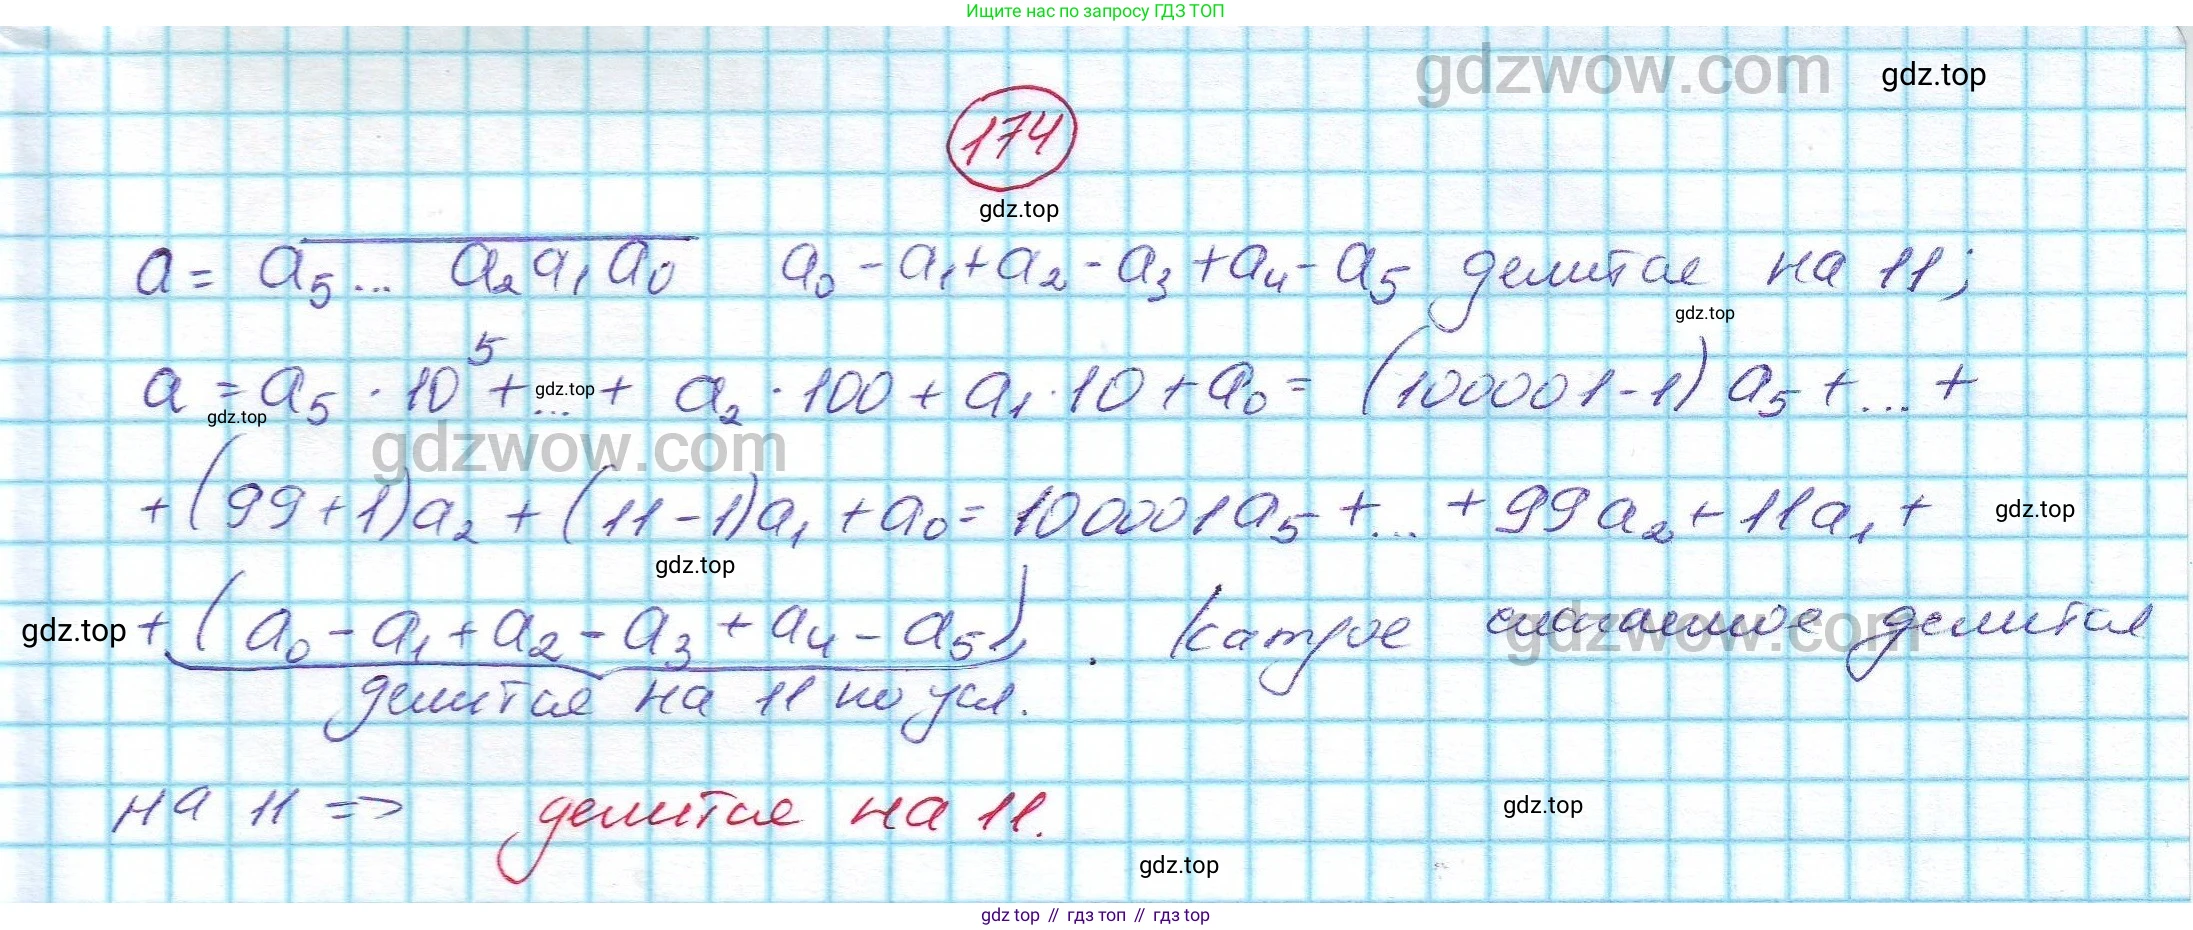 Ищите нас по запросу ГДЗ ТОП
gdzwow.com
gdz.top
174
gdz.top
a = a₅... a₂a₁a₀ a₀ - a₁ + a₂ - a₃ + a₄ - a₅ делится на 11;
gdz.top
a = a₅ · 10⁵ + ... + a₂ · 100 + a₁ · 10 + a₀ = (100001 - 1) a₅ + ... +
gdz.top
gdz.top
gdzwow.com
+ (99 + 1) a₂ + (11 - 1) a₁ + a₀ = 100001 a₅ + ... + 99 a₂ + 11 a₁ +
gdz.top
gdz.top
gdz.top
+ (a₀ - a₁ + a₂ - a₃ + a₄ - a₅). Каждое слагаемое делится
gdzwow.com
делится на 11 по усл.
на 11 => делится на 11.
gdz.top
gdz.top
gdz top // гдз топ // гдз top